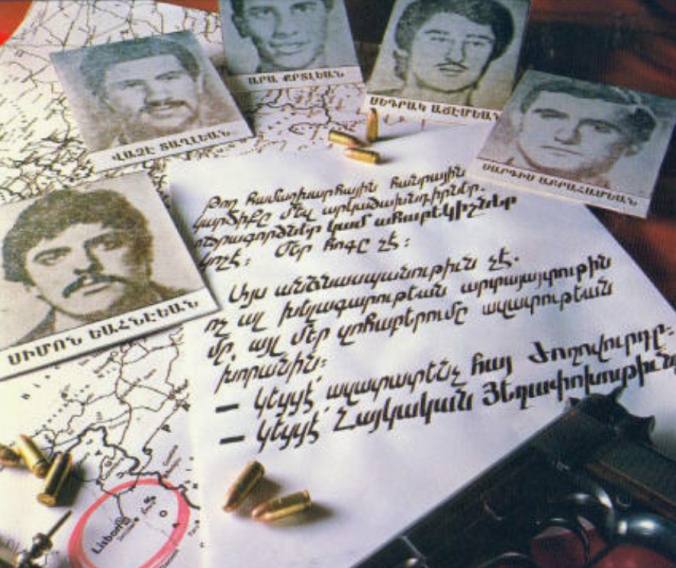 ՎԱՉԷ ՏԱՂԼԵԱՆ
ԱՐԱ ՔՐՃԼԵԱՆ
ՍԵԴՐԱԿ ԱՃԷՄԵԱՆ
ՍԱՐԳԻՍ ԱԲՐԱՀԱՄԵԱՆ
ՍԻՄՈՆ ԵԱՀՆԷԵԱՆ
Թող համաշխարհային հանրային
կարծիքը մեզ արկածախնդիրներ.
ոճրագործներ կամ ահաբեկիչներ
կոչէ: Մեր հոգը չէ:
Այս անձնասպանութիւն չէ.
ոչ ալ խենդագարութեան արտայայտութիւն
մը, այլ մեր զոհաբերումը ազատութեան
խորանին:
— Կեցցէ՛ ազատատենչ հայ ժողովուրդը:
— Կեցցէ՛ Հայկական Յեղափոխութիւնը
Lisbon